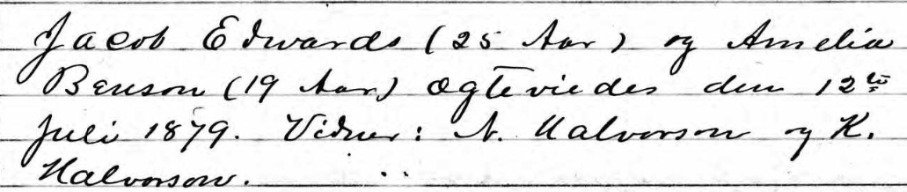 Jacob Edwards (25 Aar) og Amelia
Benson (19 Aar) Ægteviedes den 12te
Juli 1879. Vidner: N. Halvorson og K.
Halvorson.